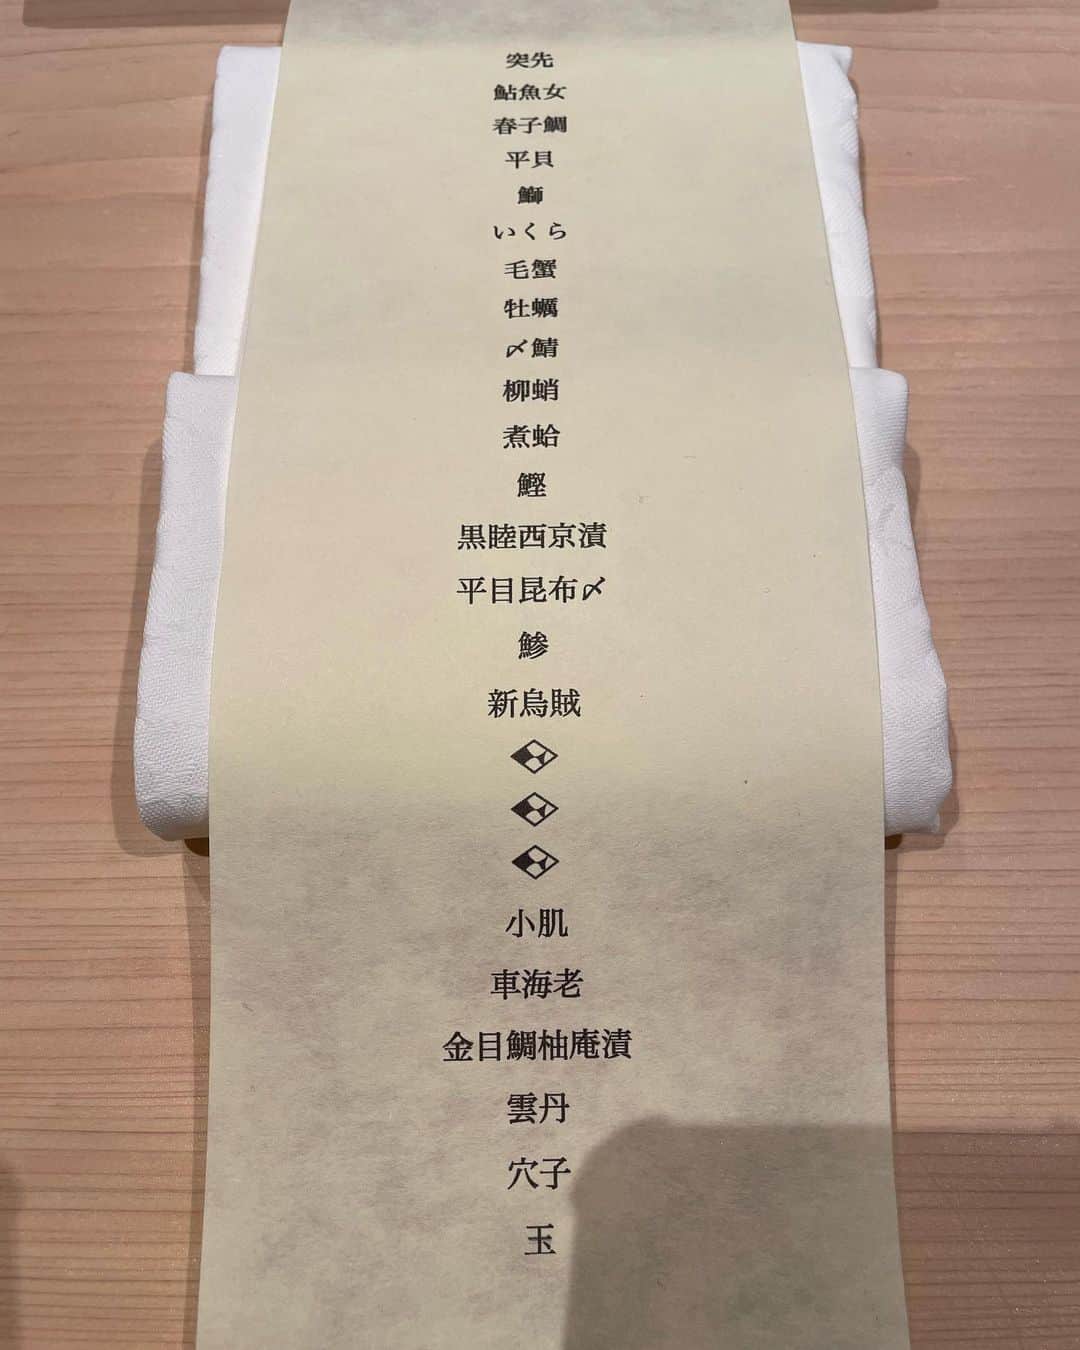 突先
鮎魚女
春子鯛
平貝
鰤
いくら
毛蟹
牡蠣
〆鯖
柳蛸
煮蛤
鰹
黒睦西京漬
平目昆布〆
鯵
新烏賊
小肌
車海老
金目鯛柚庵漬
雲丹
穴子
玉